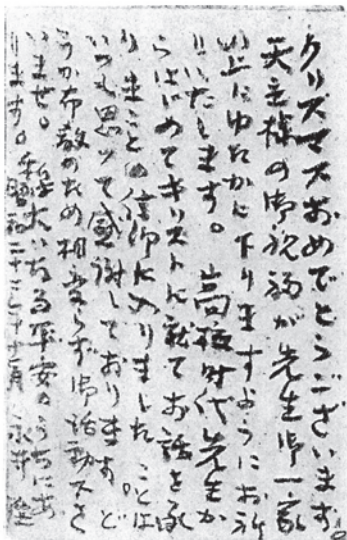 クリスマスおめでとうございます。
天主様の御祝福が先生御一家の
上にゆたかに下りますようにお祈
りいたします。 高校時代先生か
らはじめてキリストに就てお話を承
りまこと 信仰に入りました ことは
いつも思って感謝しております。ど
うか布教のため相変らず御活動下さ
いませ。 私大いなる平安のうちにあ
ります。 昭和二十 年十二月 永井隆